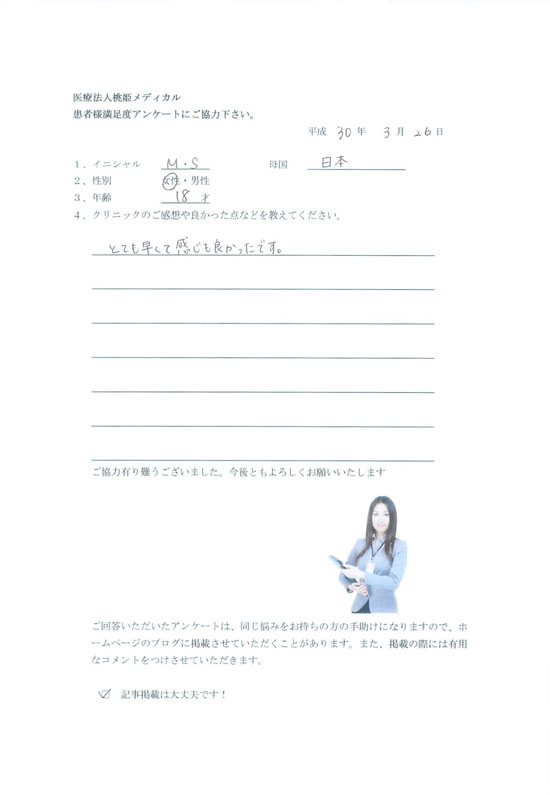 医療法人桃姫メディカル
患者様満足度アンケートにご協力下さい。
平成 30 年 3 月 26 日
1、イニシャル M・S 母国 日本
2、性別 女性・男性
3、年齢 18 才
4、クリニックのご感想や良かった点などを教えてください。
とても早くて感じも良かったです。
ご協力有り難うございました。今後ともよろしくお願いいたします
ご回答いただいたアンケートは、同じ悩みをお持ちの方の手助けになりますので、ホ
ームページのブログに掲載させていただくことがあります。また、掲載の際には有用
なコメントをつけさせていただきます。
記事掲載は大丈夫です！